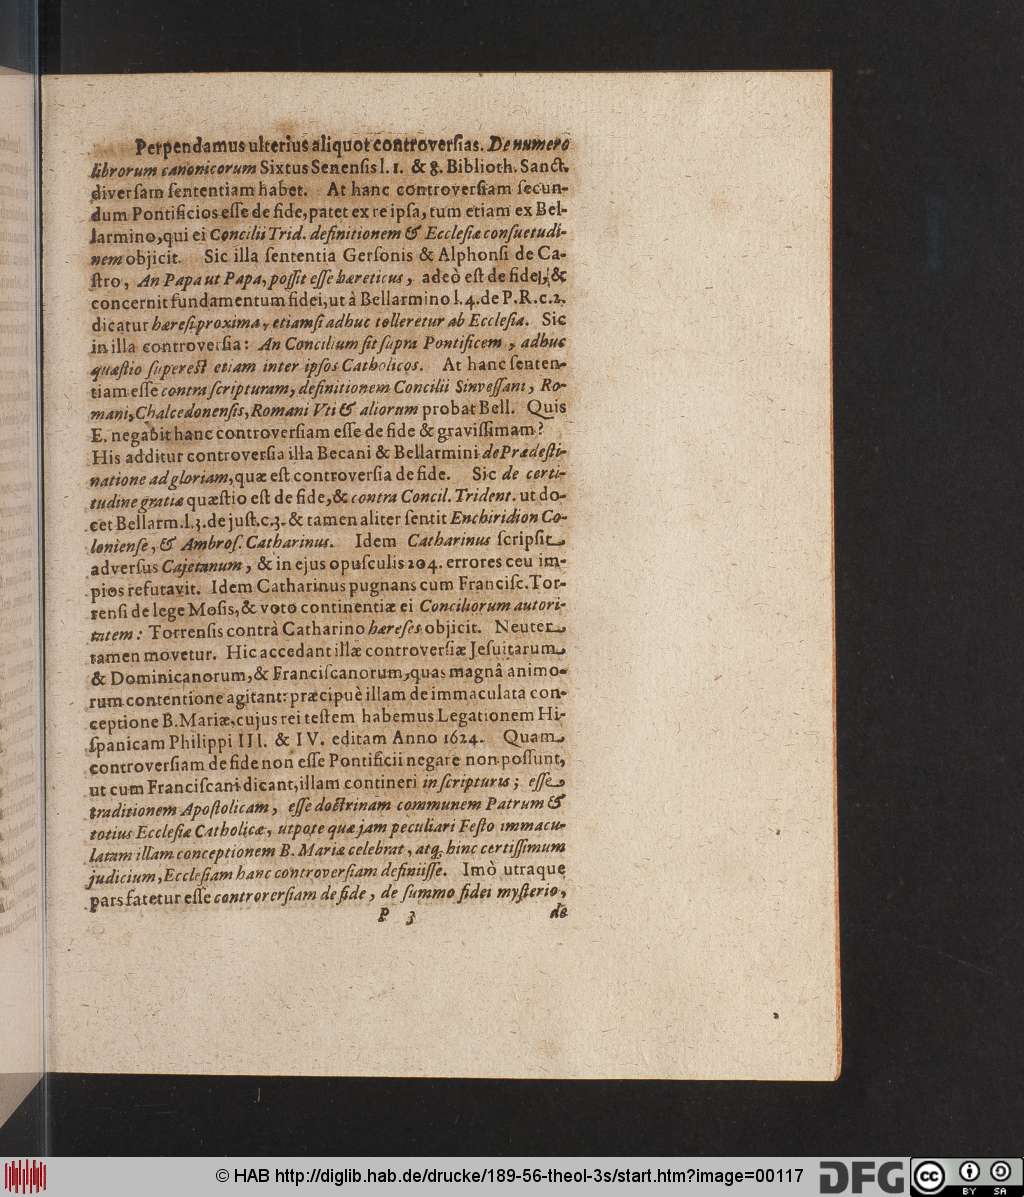 Perpendamus ulterius aliquot controversias. De numero
librorum canonicorum Sixtus Senensis l. 1. & 8. Biblioth. Sanct.
diversam sententiam habet. At hanc controversiam secun-
dum Pontificios esse de fide, patet ex re ipsa, tum etiam ex Bel-
larmino, qui ei Concilii Trid. definitionem & Ecclesiæ consuetudi-
nem objicit. Sic illa sententia Gersonis & Alphonsi de Ca-
stro, An Papa ut Papa, possit esse hæreticus, adeò est de fide, &
concernit fundamentum fidei, ut à Bellarmino l. 4. de P. R. c. 2.
dicatur hæresi proxima, etiamsi adhuc tolleretur ab Ecclesia. Sic
in illa controversia: An Concilium sit supra Pontificem, adhuc
quæstio superest etiam inter ipsos Catholicos. At hanc senten-
tiam esse contra scripturam, definitionem Concilii Sinvessani, Ro-
mani, Chalcedonensis, Romani Vti & aliorum probat Bell. Quis
E. negabit hanc controversiam esse de fide & gravissimam?
His additur controversia illa Becani & Bellarmini de Prædesti-
natione ad gloriam, quæ est controversia de fide. Sic de certi-
tudine gratiæ quæstio est de fide, & contra Concil. Trident. ut do-
cet Bellarm. l. 3. de just. c. 3. & tamen aliter sentit Enchiridion Co-
loniense, & Ambros. Catharinus. Idem Catharinus scripsit
adversus Cajetanum, & in ejus opusculis 204. errores ceu im-
pios refutavit. Idem Catharinus pugnans cum Francisc. Tor-
rensi de lege Mosis, & voto continentiæ ei Conciliorum autori-
tatem: Torrensis contrà Catharino hæreses objicit. Neuter
tamen movetur. Hic accedant illæ controversiæ Jesuitarum
& Dominicanorum, & Franciscanorum, quas magnâ animo-
rum contentione agitant: præcipuè illam de immaculata con-
ceptione B. Mariæ, cujus rei testem habemus Legationem Hi-
spanicam Philippi III. & IV. editam Anno 1624. Quam
controversiam de fide non esse Pontificii negare non possunt,
ut cum Franciscani dicant, illam contineri in scripturis; esse
traditionem Apostolicam, esse doctrinam communem Patrum &
totius Ecclesiæ Catholicæ, utpote quæ jam peculiari Festo immacu-
latam illam conceptionem B. Mariæ celebrat, atq; hinc certissimum
judicium, Ecclesiam hanc controversiam definiisse. Imò utraque
pars fatetur esse controrersiam de fide, de summo fidei mysterio,
P 3 de
© HAB http://diglib.hab.de/drucke/189-56-theol-3s/start.htm?image=00117
DFG
cc BY SA